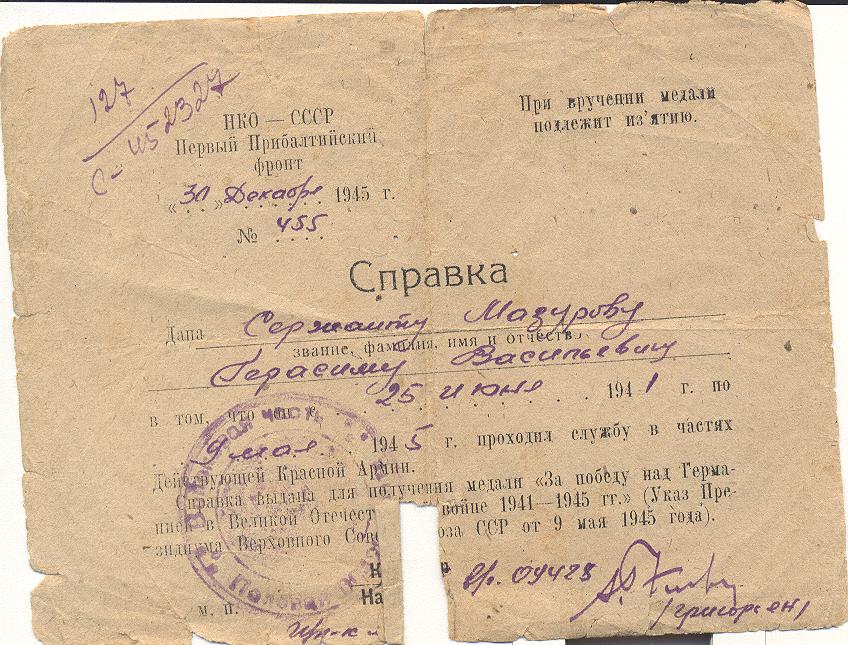 127
С-452327
НКО — СССР
Первый Прибалтийский
фронт
«30» Декабря 1945 г.
№ 455
При вручении медали
подлежит из'ятию.
Справка
Дана Сержанту Мазурову
звание, фамилия, имя и отчество
Герасиму Васильевичу
в том, что он с 25 июня 1941 г. по
9 мая 1945 г. проходил службу в частях
Действующей Красной Армии.
Справка выдана для получения медали «За победу над Герма-
нией в Великой Отечест войне 1941—1945 гг.» (Указ Пре-
зидиума Верховного Сове оза ССР от 9 мая 1945 года).
К
На
м. п.
09428
Полевая